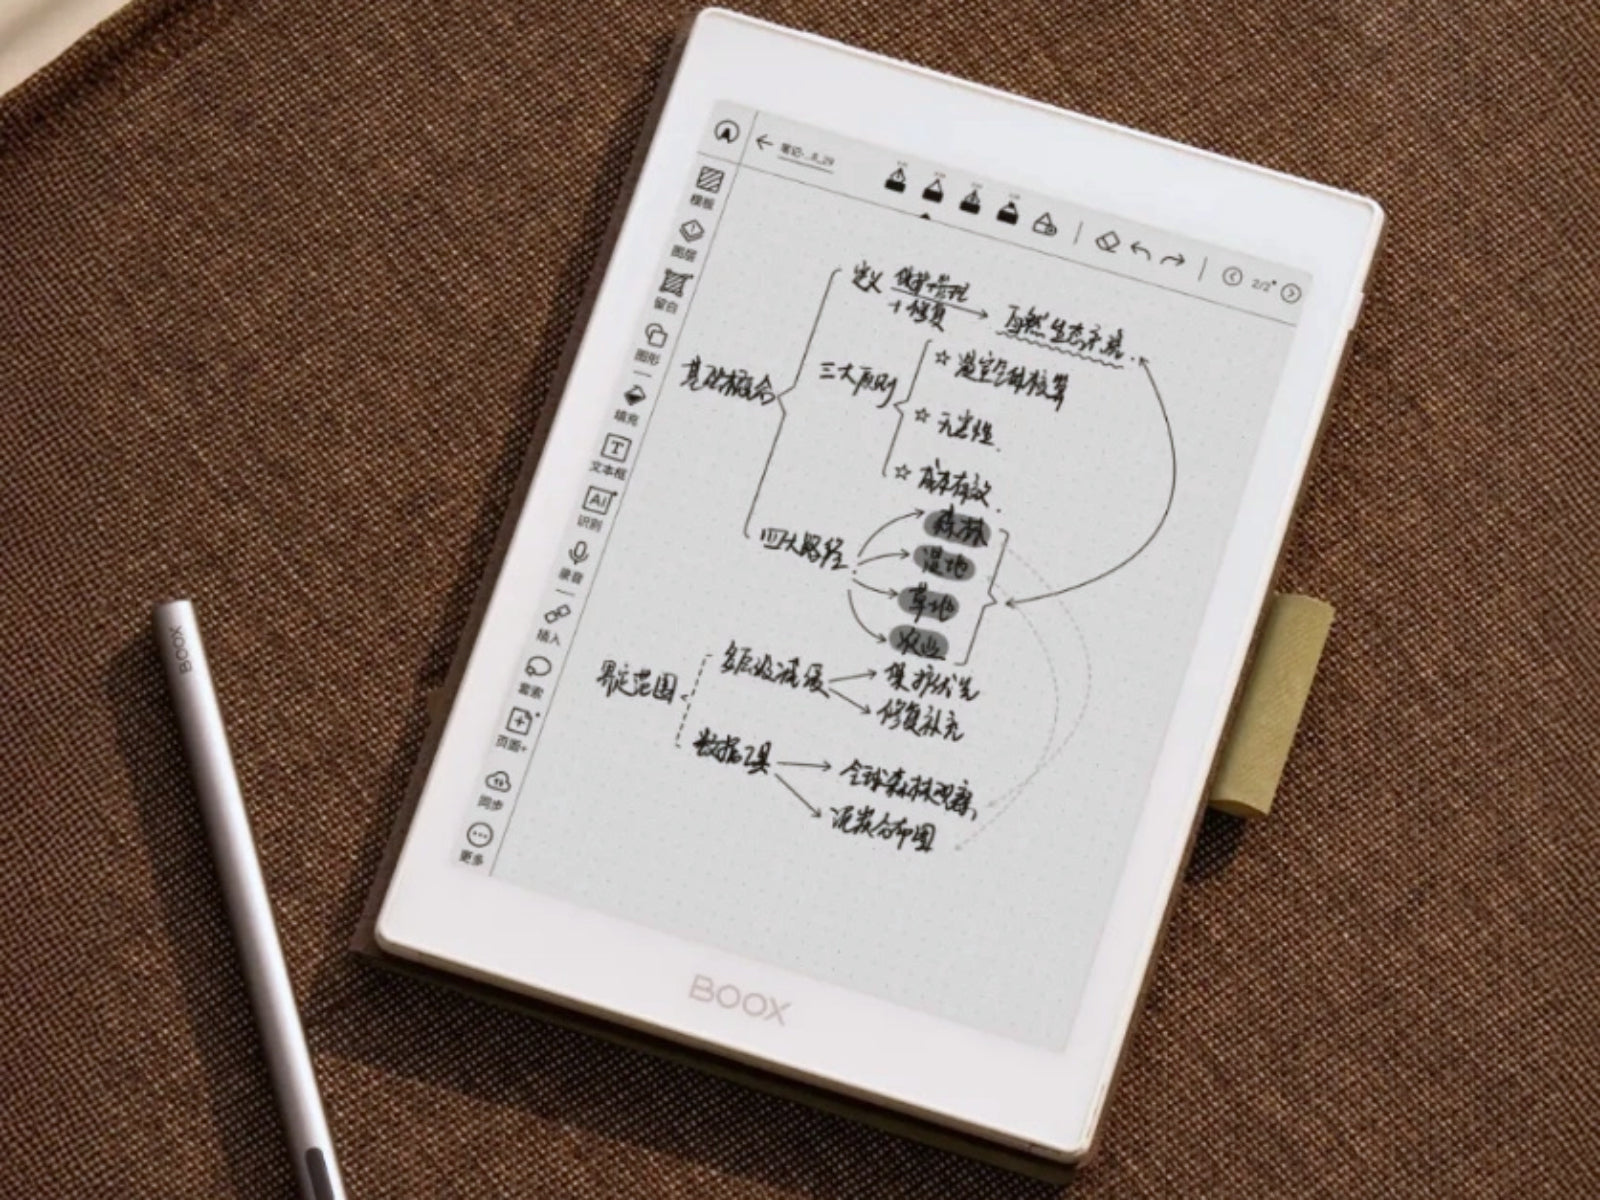 笔记-...8_29
2/2
模板
图层
留白
图形
填充
文本框
识别
录音
插入
套索
页面+
同步
更多
定义 保护+管理
+修复
自然生态系统
基础概念
三大原则
☆ 温室气体核算
☆ 无害性
☆ 成本有效
四大路径
森林
湿地
草地
农业
界定范围
多层级流程
保护优先
修复补充
数据工具
全球森林观察
泥炭分布图
BOOX
BOOX